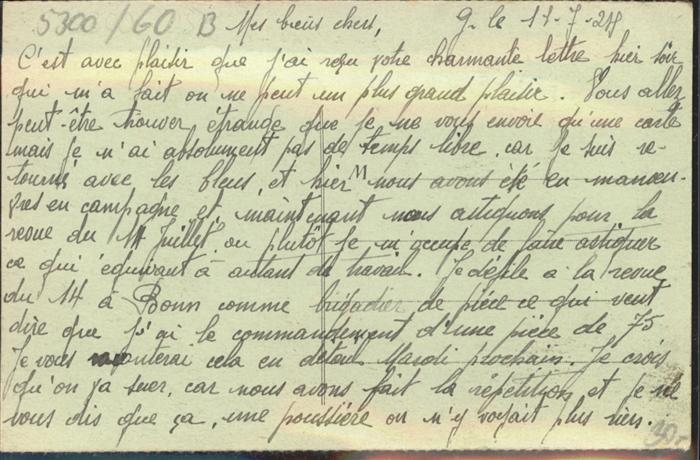 5300/60 B Mes biens chers, G. le 11-7-28
C'est avec plaisir que j'ai reçu votre charmante lettre hier soir
qui m'a fait on ne peut un plus grand plaisir. Vous allez
peut-être trouver étrange que je ne vous envoie qu'une carte
mais je n'ai absolument pas de temps libre, car je suis re-
tourné avec les bleus, et hier M nous avons été en manoeu-
vres en campagne et maintenant nous astiquons pour la
revue du 14 Juillet, ou plutôt je m'occupe de faire astiquer
ce qui équivaut à autant de travail. Je défile à la revue
du 14 à Bonn comme brigadier de pièce ce qui veut
dire que j'ai le commandement d'une pièce de 75
Je vous raconterai cela en détail Mardi prochain. Je crois
qu'on va suer, car nous avons fait la répétition et je ne
vous dis que ça, une poussière on n'y voyait plus rien.